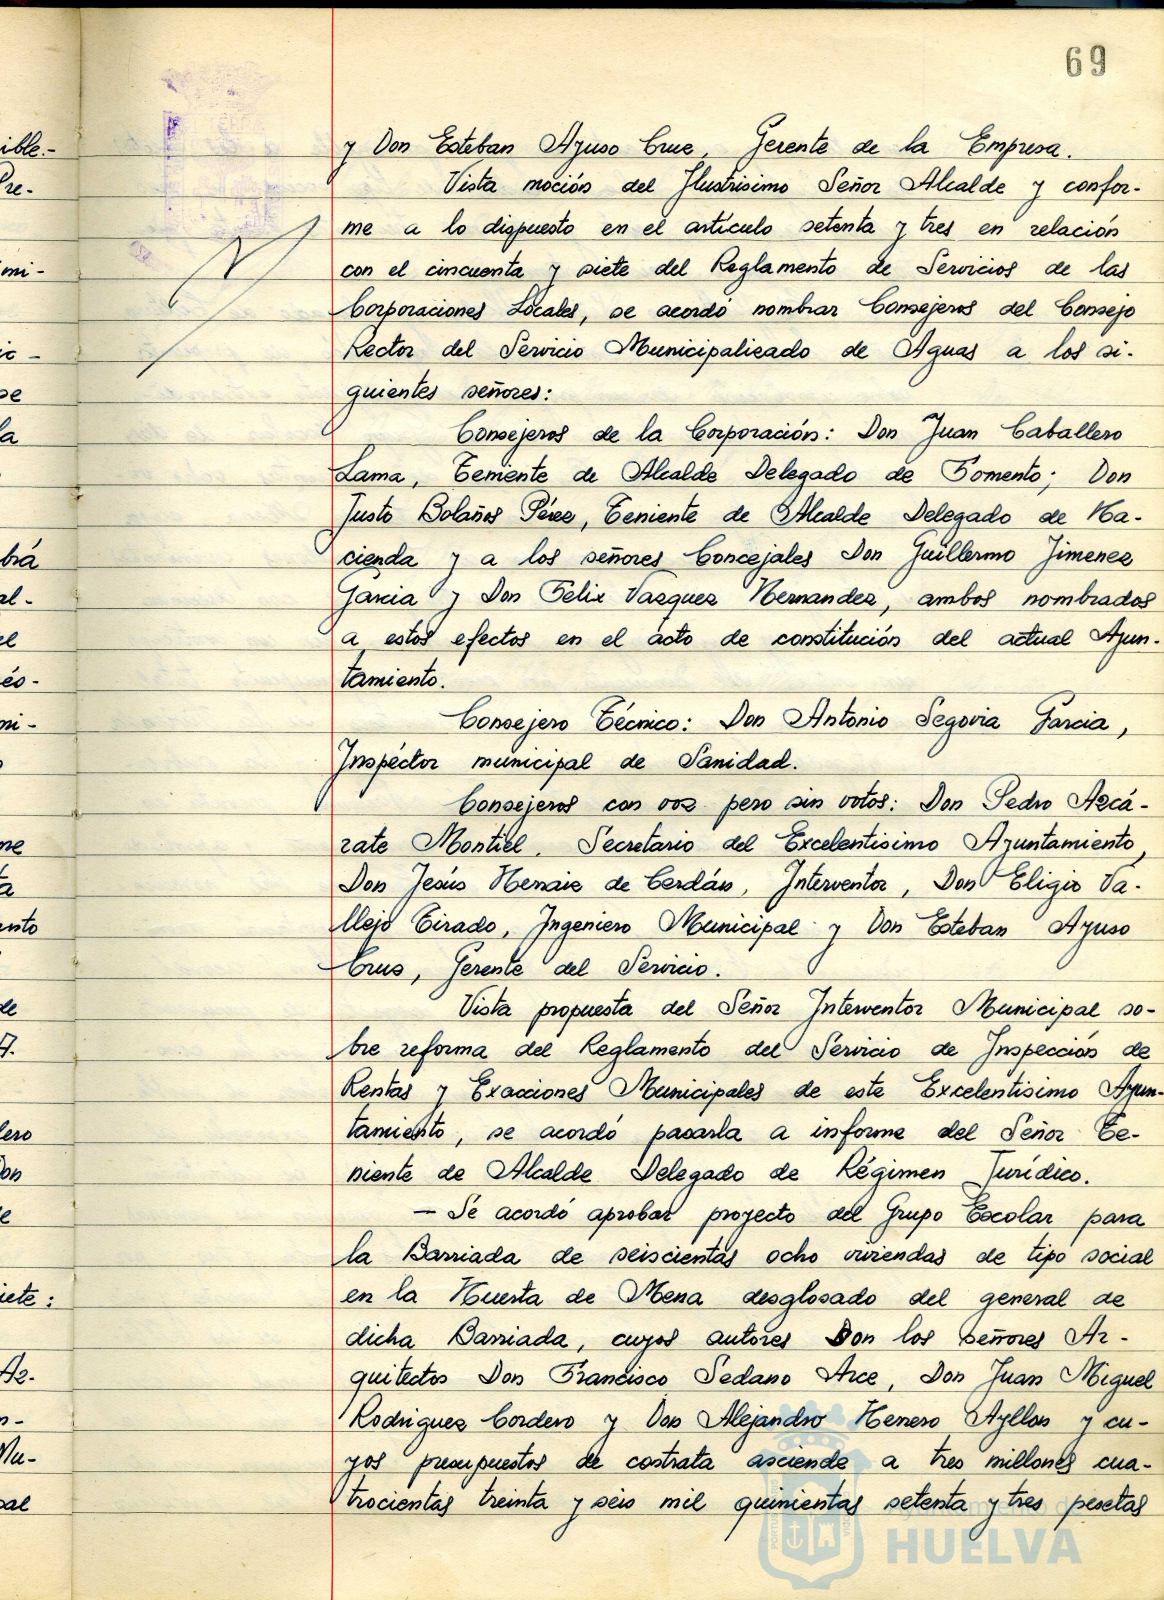 69
y Don Esteban Ayuso Cruz, Gerente de la Empresa.
Vista moción del Ilustrisimo Señor Alcalde y confor-
me a lo dispuesto en el artículo setenta y tres en relación
con el cincuenta y siete del Reglamento de Servicios de las
Corporaciones Locales, se acordó nombrar Consejeros del Consejo
Rector del Servicio Municipalizado de Aguas a los si-
guientes señores:
Consejeros de la Corporación: Don Juan Caballero
Lama, Teniente de Alcalde Delegado de Fomento; Don
Justo Bolaños Pérez, Teniente de Alcalde Delegado de Ha-
cienda y a los señores Concejales Don Guillermo Jimenez
Garcia y Don Felix Vazquez Hernandez, ambos nombrados
a estos efectos en el acto de constitución del actual Ayun-
tamiento.
Consejero Técnico: Don Antonio Segovia Garcia,
Inspector municipal de Sanidad.
Consejeros con voz pero sin votos: Don Pedro Azcá-
rate Montiel, Secretario del Excelentisimo Ayuntamiento,
Don Jesús Hernaiz de Cerdán, Interventor, Don Eligio Va-
llejo Tirado, Ingeniero Municipal y Don Esteban Ayuso
Cruz, Gerente del Servicio.
Vista propuesta del Señor Interventor Municipal so-
bre reforma del Reglamento del Servicio de Inspección de
Rentas y Exacciones Municipales de este Excelentisimo Ayun-
tamiento, se acordó pasarla a informe del Señor Te-
niente de Alcalde Delegado de Régimen Jurídico.
— Se acordó aprobar proyecto del Grupo Escolar para
la Barriada de seiscientas ocho viviendas de tipo social
en la Huerta de Mena desglosado del general de
dicha Barriada, cuyos autores son los señores Ar-
quitectos Don Francisco Sedano Arce, Don Juan Miguel
Rodriguez Cordero y Don Alejandro Herrero Ayllon y cu-
yos presupuestos de contrata asciende a tres millones cua-
trocientas treinta y seis mil quinientas setenta y tres pesetas
Ayuntamiento de
HUELVA